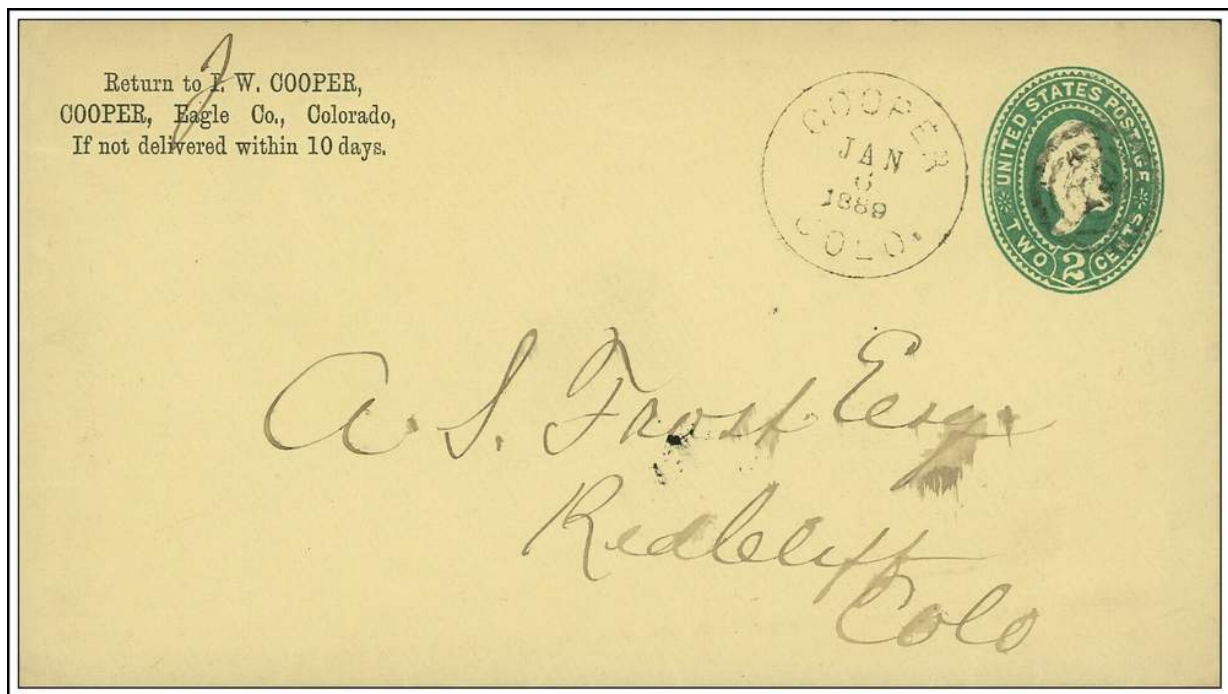 Return to I. W. COOPER,
J
COOPER, Eagle Co., Colorado,
If not delivered within 10 days.
COOPER
JAN
6
1889
COLO.
UNITED STATES POSTAGE
TWO 2 CENTS
A. S. Frost Esq.
Redcliff
Colo